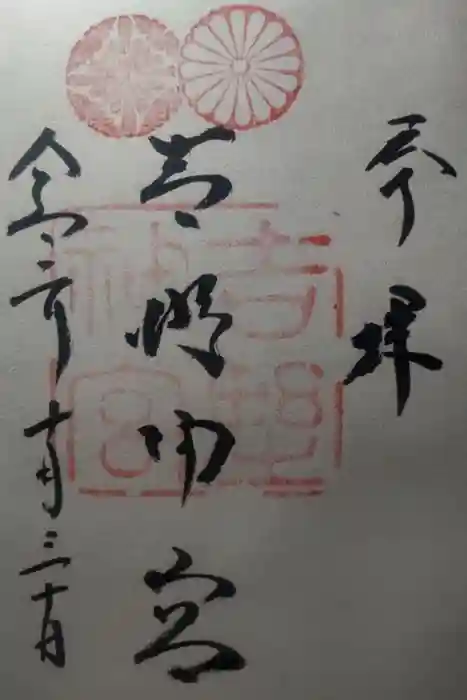 奉拝
吉野神宮
令和年十月三十日
吉野
神宮